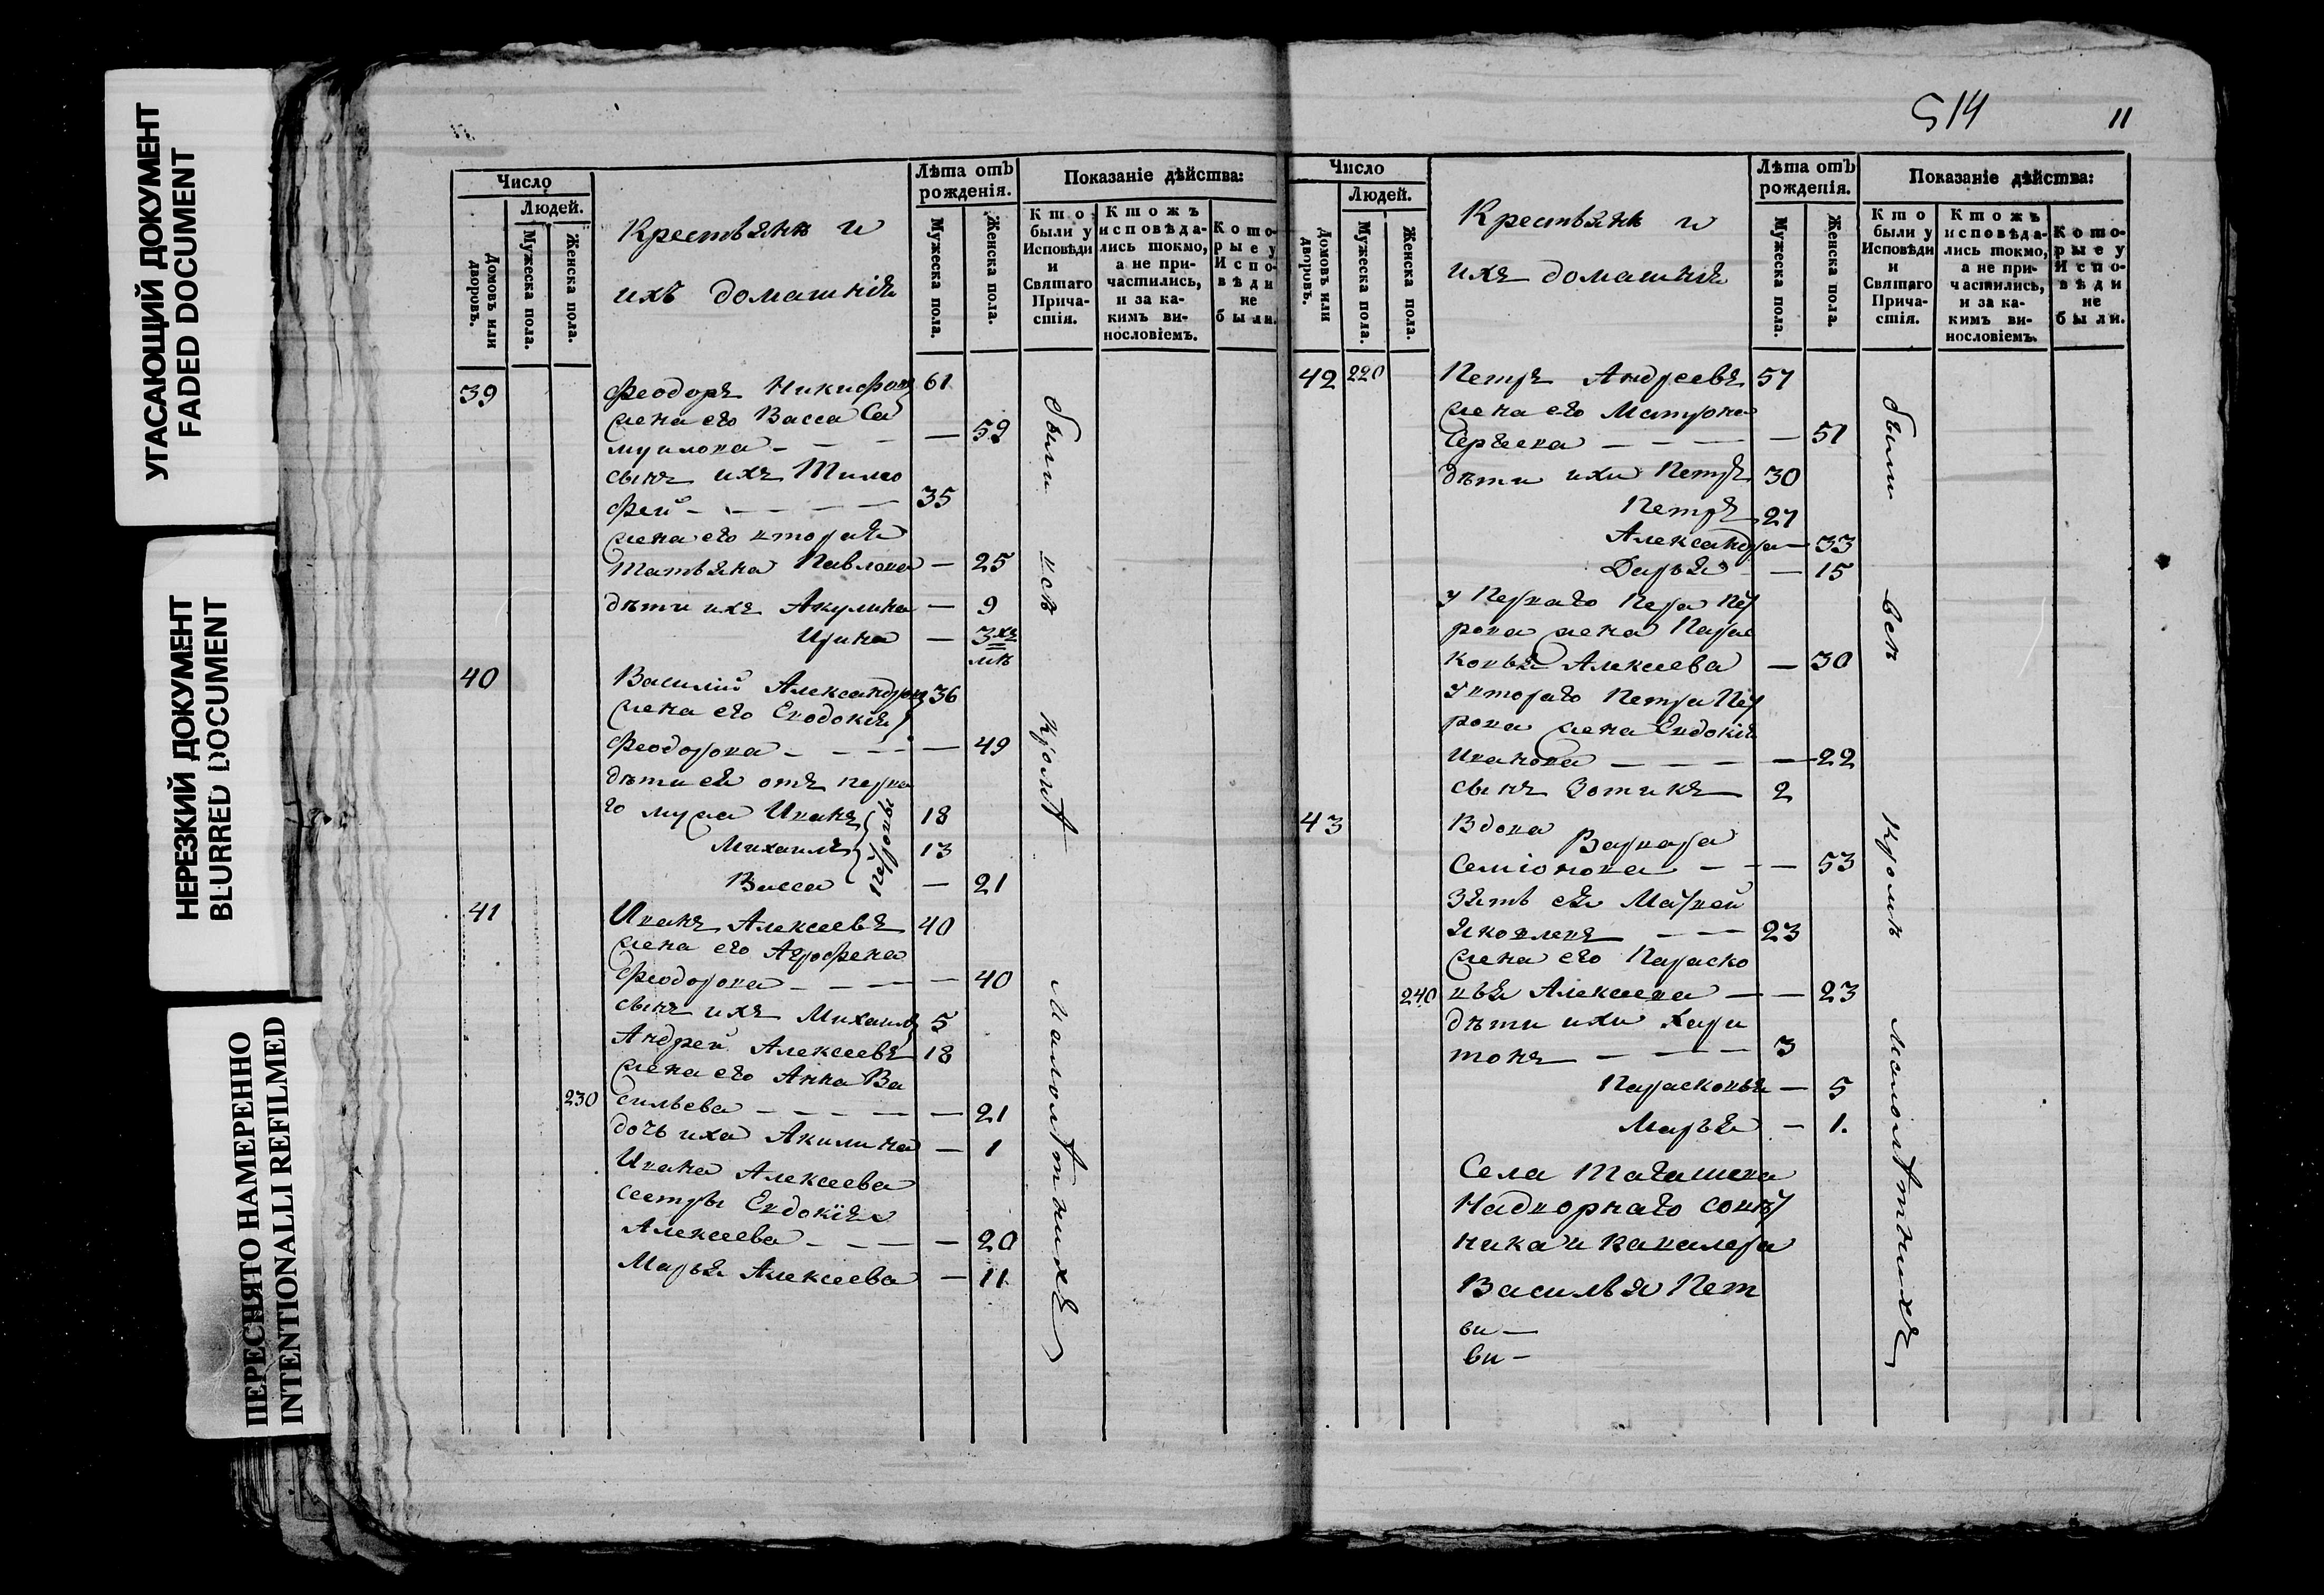 УГАСАЮЩИЙ ДОКУМЕНТ
FADED DOCUMENT
НЕРЕЗКИЙ ДОКУМЕНТ
BLURRED DOCUMENT
ПЕРЕСНЯТО НАМЕРЕННО
INTENTIONALLI REFILMED
Число
Людей.
Домовъ или дворовъ.
Мужеска пола.
Женска пола.
Крестьянѣ и
ихъ домашнія
Лѣта отъ
рожденія.
Мужеска пола.
Женска пола.
Показаніе дѣйства:
Кто были у Исповѣди и Святаго Причастія.
Ктожъ исповѣдались токмо, а не причастились, и за какимъ винословіемъ.
Которые у Исповѣди не были.
39 Феодоръ Никифоровъ 61
жена его Васса Са
муилова - — 59
сынъ ихъ Тимо
фей - 35
жена его вторая
Татьяна Павлова — 25
дѣти ихъ Акулина — 9
Ирина — 3хъ
мѣ
40 Василій Александровъ 36
жена его Евдокія
Феодорова - — 49
дѣти ея отъ перва
го мужа Иванъ 18
Михаилъ 13
Васса — 21
Петровы
41 Иванъ Алексеевъ 40
жена его Агрофена
Феодорова - — 40
сынъ ихъ Михаилъ 5
Андрей Алексеевъ 18
жена его Анна Ва
230 сильева — — 21
дочь ихъ Акилина — 1
Ивана Алексеева
сестры Евдокія
Алексеева - — 20
Марья Алексеева — 11
были всѣ кромѣ малолѣтнихъ
514
11
Число
Людей.
Домовъ или дворовъ.
Мужеска пола.
Женска пола.
Крестьянѣ и
ихъ домашніе
Лѣта отъ
рожденія.
Мужеска пола.
Женска пола.
Показаніе дѣйства:
Кто были у Исповѣди и Святаго Причастія.
Ктожъ исповѣдались токмо, а не причастились, и за какимъ винословіемъ.
Которые у Исповѣди не были.
42 220 Петръ Андреевъ 57
жена его Матрона
Сергѣева — — 51
дѣти ихи Петръ 30
Петръ 27
Александра — 33
Дарья — 15
у перваго Петра Пет
рова жена Парас
ковья Алексеева — 30
у втораго Петра Пет
рова жена Евдокія
Иванова — — 22
сынъ Зотикъ 2
43 Вдова
Варвара
Семіонова — — 53
Зять ея Матвей
Яковлевъ — 23
жена его Параско
240 вья Алексеева — — 23
дѣти ихи Хари
тонъ — 3
Парасковья — 5
Марья — 1.
Села Тагашева
Надворнаго совѣт
ника и Кавалера
Василья Пет
ви —
ви —
были всѣ кромѣ малолѣтнихъ